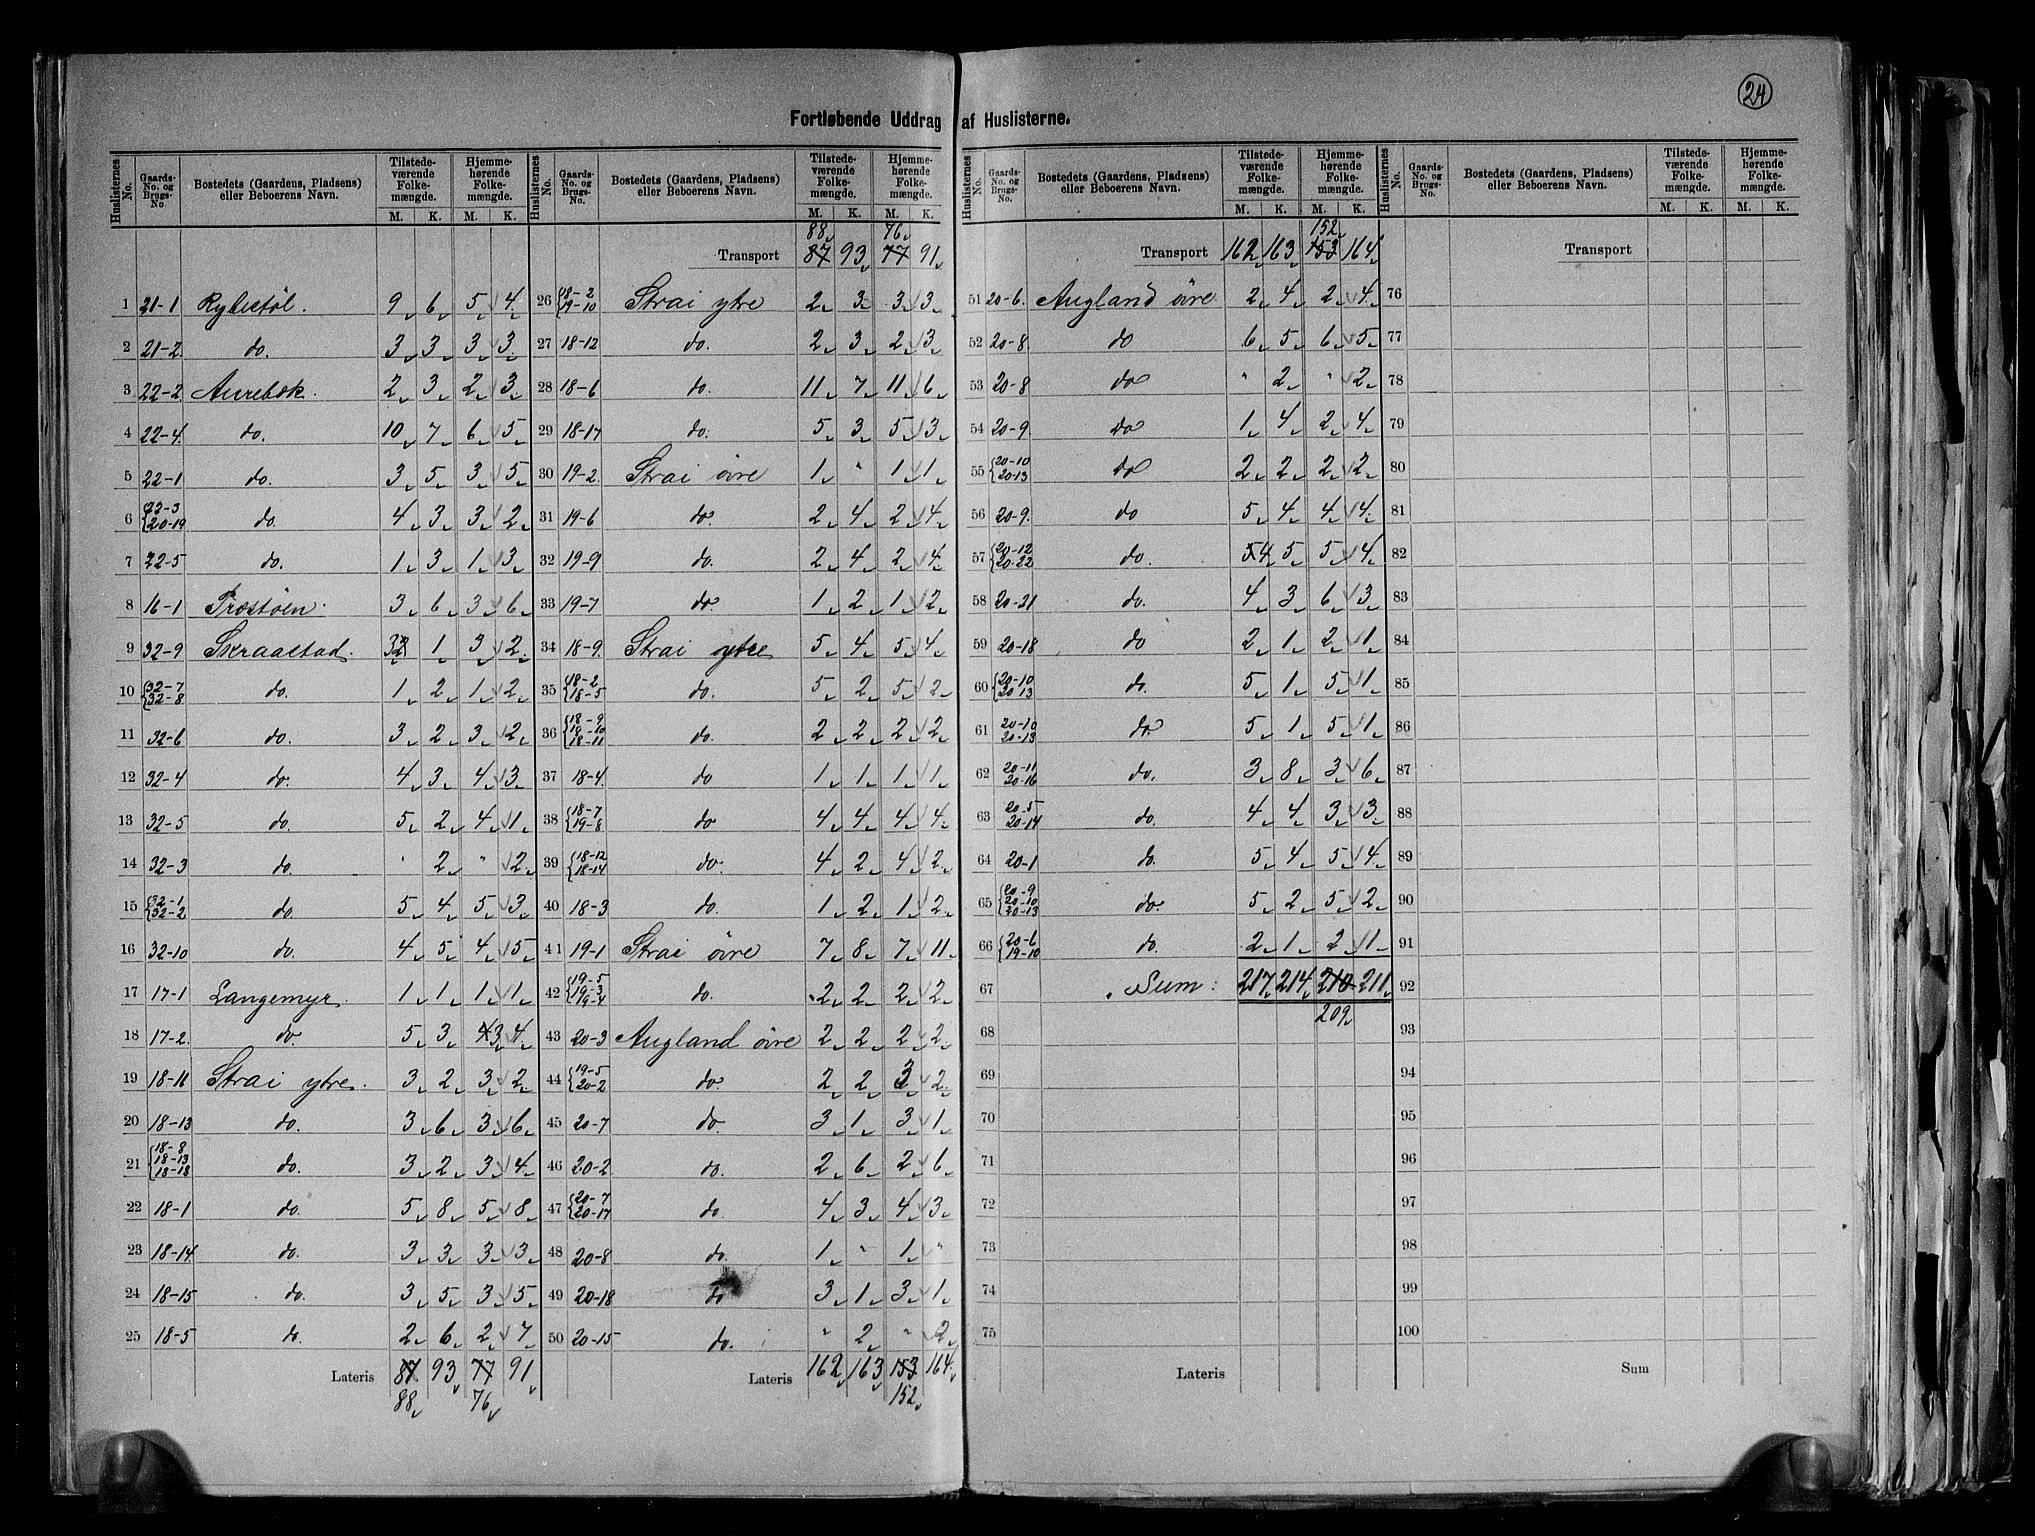 24
Fortløbende Uddrag af Huslisterne.
Huslisternes No. Gaards-No. og Brugs-No. Bostedets (Gaardens, Pladsens) eller Beboerens Navn. Tilstede-værende Folke-mængde. Hjemme-hørende Folke-mængde. M. K. M. K.
1 21-1 Rybestøl. 9 6 5 4
2 21-2 do. 3 3 3 3
3 22-2 Aurebæk. 2 3 2 3
4 22-4 do. 10 7 6 5
5 22-1 do. 3 5 3 5
6 22-3 20-19 do. 4 3 3 2
7 22-5 do. 1 3 1 3
8 16-1 Præstøen. 3 6 3 6
9 32-9 Skraastad. 1 3 2
10 32-7 32-8 do. 1 2 1 2
11 32-6 do. 3 2 3 2
12 32-4 do. 4 3 4 3
13 32-5 do. 5 2 4 1
14 32-3 do. " 2 " 2
15 32-1 32-2 do. 5 4 5 3
16 32-10 do. 4 5 4 5
17 17-1 Langemyr. 1 1 1 1
18 17-2 do 5 3 4 3 4
19 18-16 Strai ytre. 3 2 3 2
20 18-13 do. 3 6 3 6
21 18-8 18-13 18-18 do. 3 2 3 4
22 18-1 do. 5 8 5 8
23 18-14 do. 3 3 3 3
24 18-15 do. 3 5 3 5
25 18-5 do. 2 6 2 7
Lateris 87 93 77 91
88 76
Huslisternes No. Gaards-No. og Brugs-No. Bostedets (Gaardens, Pladsens) eller Beboerens Navn. Tilstede-værende Folke-mængde. Hjemme-hørende Folke-mængde. M. K. M. K.
88 76
Transport 87 93 77 91
26 18-2 19-10 Strai ytre 2 3 3 3
27 18-12 do. 2 3 2 3
28 18-6 do. 11 7 11 6
29 18-17 do. 5 3 5 3
30 19-2 Strai øvre 1 " 1 1
31 19-6 do. 2 4 2 4
32 19-9 do. 2 4 2 4
33 19-7 do. 1 2 1 2
34 18-9 Strai ytre 5 4 5 4
35 18-2 18-5 do. 5 2 5 2
36 18-9 18-10 18-11 do. 2 2 2 2
37 18-4 do 1 1 1 1
38 18-7 19-8 do 4 4 4 4
39 18-12 18-14 do. 4 2 4 2
40 18-3 do. 1 2 1 2
41 19-1 Strai øvre 7 8 7 11
42 19-5 19-3 19-4 do. 2 2 2 2
43 20-3 Augland øvre 2 2 2 2
44 19-5 20-2 do. 2 2 3 2
45 20-7 do. 3 1 3 1
46 20-2 do. 2 6 2 6
47 20-7 20-17 do. 4 3 4 3
48 20-8 do. 1 " 1 "
49 20-18 do 3 1 3 1
50 20-15 do. " 2 " 2
Lateris 162 163 153 164
152
Huslisternes No. Gaards-No. og Brugs-No. Bostedets (Gaardens, Pladsens) eller Beboerens Navn. Tilstede-værende Folke-mængde. Hjemme-hørende Folke-mængde. M. K. M. K.
152
Transport 162 163 153 164
51 20-6 Augland øvre 2 4 2 4
52 20-8 do 6 5 6 5
53 20-8 do " 2 " 2
54 20-9 do 1 4 2 4
55 20-10 20-13 do 2 2 2 2
56 20-9 do 5 4 4 4
57 20-12 20-22 do. 5 4 5 5 4
58 20-21 do. 4 3 6 3
59 20-18 do 2 1 2 1
60 20-10 20-13 do. 5 1 5 1
61 20-10 20-13 do. 5 1 5 1
62 20-11 20-16 do. 3 8 3 6
63 20-5 20-14 do. 4 4 3 3
64 20-1 do. 5 4 5 4
65 20-9 20-10 20-13 do. 5 2 5 2
66 20-6 19-10 do. 2 1 2 1
67 Sum: 217 214 210 211
68 209
69
70
71
72
73
74
75
Lateris
Huslisternes No. Gaards-No. og Brugs-No. Bostedets (Gaardens, Pladsens) eller Beboerens Navn. Tilstede-værende Folke-mængde. Hjemme-hørende Folke-mængde. M. K. M. K.
Transport
76
77
78
79
80
81
82
83
84
85
86
87
88
89
90
91
92
93
94
95
96
97
98
99
100
Sum